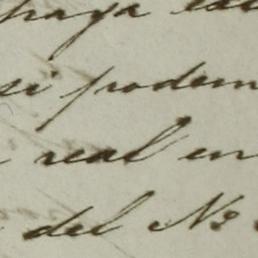 haga
si podem
real en
del No